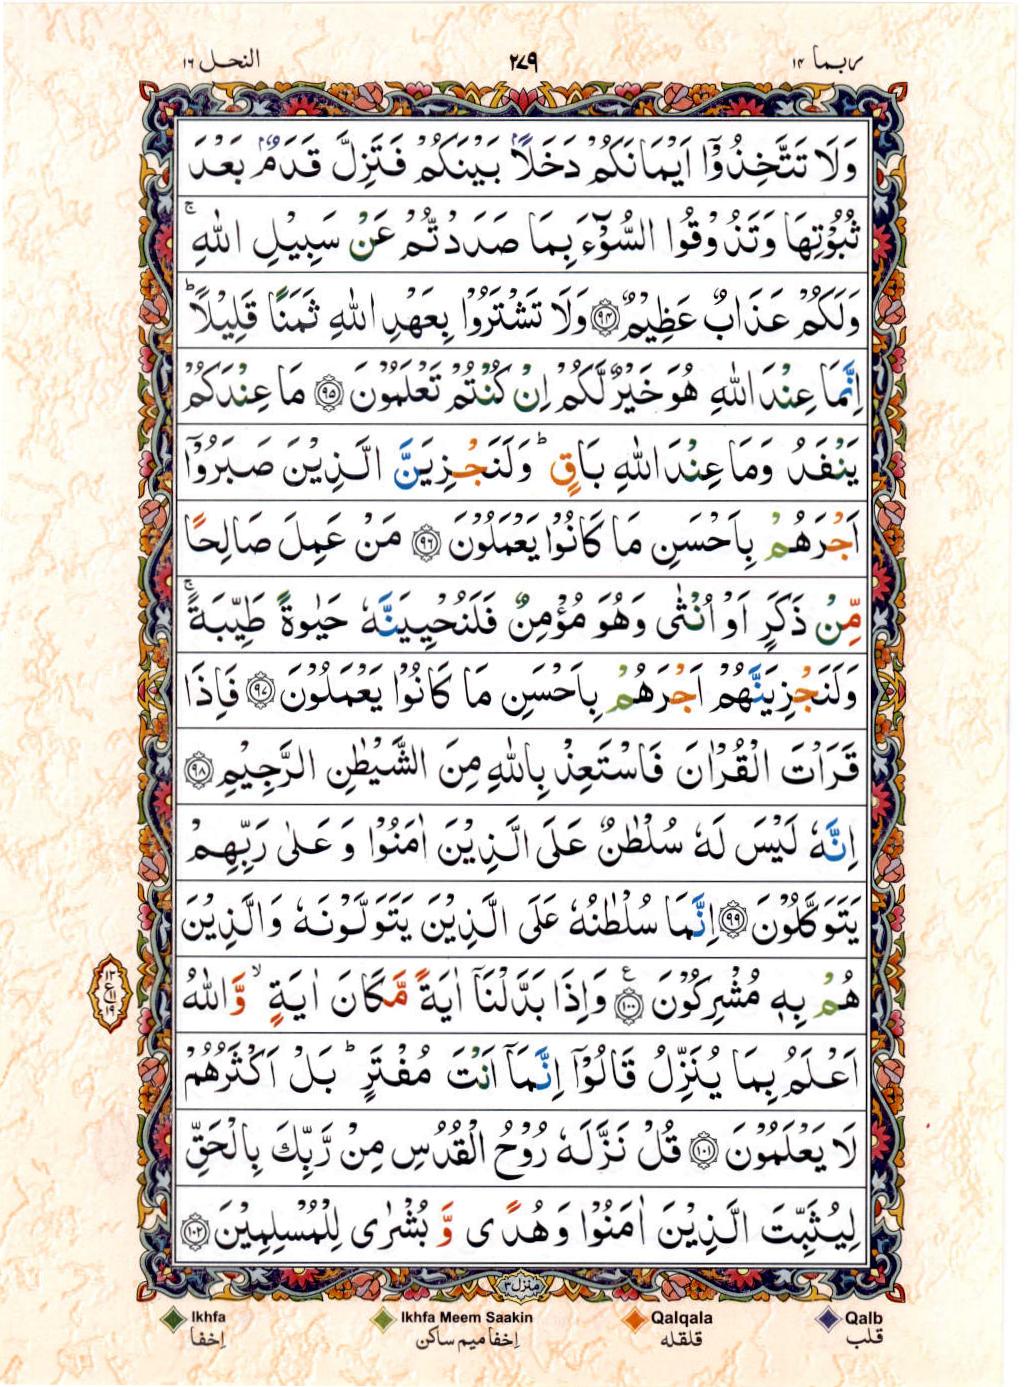 ربما ۱۴ ۲۷۹ النحل ۱۶
وَلَا تَتَّخِذُوْۤا اَيْمَانَكُمْ دَخَلًۢا بَيْنَكُمْ فَتَزِلَّ قَدَمٌۢ بَعْدَ
ثُبُوْتِهَا وَتَذُوْقُوا السُّوْٓءَ بِمَا صَدَدْتُّمْ عَنْ سَبِيْلِ اللّٰهِ ۚ
وَلَكُمْ عَذَابٌ عَظِيْمٌ ﴿۹۴﴾ وَلَا تَشْتَرُوْا بِعَهْدِ اللّٰهِ ثَمَنًا قَلِيْلًا ؕ
اِنَّمَا عِنْدَ اللّٰهِ هُوَ خَيْرٌ لَّكُمْ اِنْ كُنْتُمْ تَعْلَمُوْنَ ﴿۹۵﴾ مَا عِنْدَكُمْ
يَنْفَدُ وَمَا عِنْدَ اللّٰهِ بَاقٍ ؕ وَلَنَجْزِيَنَّ الَّذِيْنَ صَبَرُوْۤا
اَجْرَهُمْ بِاَحْسَنِ مَا كَانُوْا يَعْمَلُوْنَ ﴿۹۶﴾ مَنْ عَمِلَ صَالِحًا
مِّنْ ذَكَرٍ اَوْ اُنْثٰى وَهُوَ مُؤْمِنٌ فَلَنُحْيِيَنَّهٗ حَيٰوةً طَيِّبَةً ۚ
وَلَنَجْزِيَنَّهُمْ اَجْرَهُمْ بِاَحْسَنِ مَا كَانُوْا يَعْمَلُوْنَ ﴿۹۷﴾ فَاِذَا
قَرَاْتَ الْقُرْاٰنَ فَاسْتَعِذْ بِاللّٰهِ مِنَ الشَّيْطٰنِ الرَّجِيْمِ ﴿۹۸﴾
اِنَّهٗ لَيْسَ لَهٗ سُلْطٰنٌ عَلَى الَّذِيْنَ اٰمَنُوْا وَعَلٰى رَبِّهِمْ
يَتَوَكَّلُوْنَ ﴿۹۹﴾ اِنَّمَا سُلْطٰنُهٗ عَلَى الَّذِيْنَ يَتَوَلَّوْنَهٗ وَالَّذِيْنَ
هُمْ بِهٖ مُشْرِكُوْنَ ﴿۱۰۰﴾ ع وَاِذَا بَدَّلْنَاۤ اٰيَةً مَّكَانَ اٰيَةٍ ۙ وَّاللّٰهُ
۱۳ ع ۱۱ ۱۹
اَعْلَمُ بِمَا يُنَزِّلُ قَالُوْۤا اِنَّمَاۤ اَنْتَ مُفْتَرٍ ؕ بَلْ اَكْثَرُهُمْ
لَا يَعْلَمُوْنَ ﴿۱۰۱﴾ قُلْ نَزَّلَهٗ رُوْحُ الْقُدُسِ مِنْ رَّبِّكَ بِالْحَقِّ
لِيُثَبِّتَ الَّذِيْنَ اٰمَنُوْا وَهُدًى وَّ بُشْرٰى لِلْمُسْلِمِيْنَ ﴿۱۰۲﴾
منزل ۳
Ikhfa Ikhfa Meem Saakin Qalqala Qalb
إخفا إخفا میم ساکن قلقله قلب